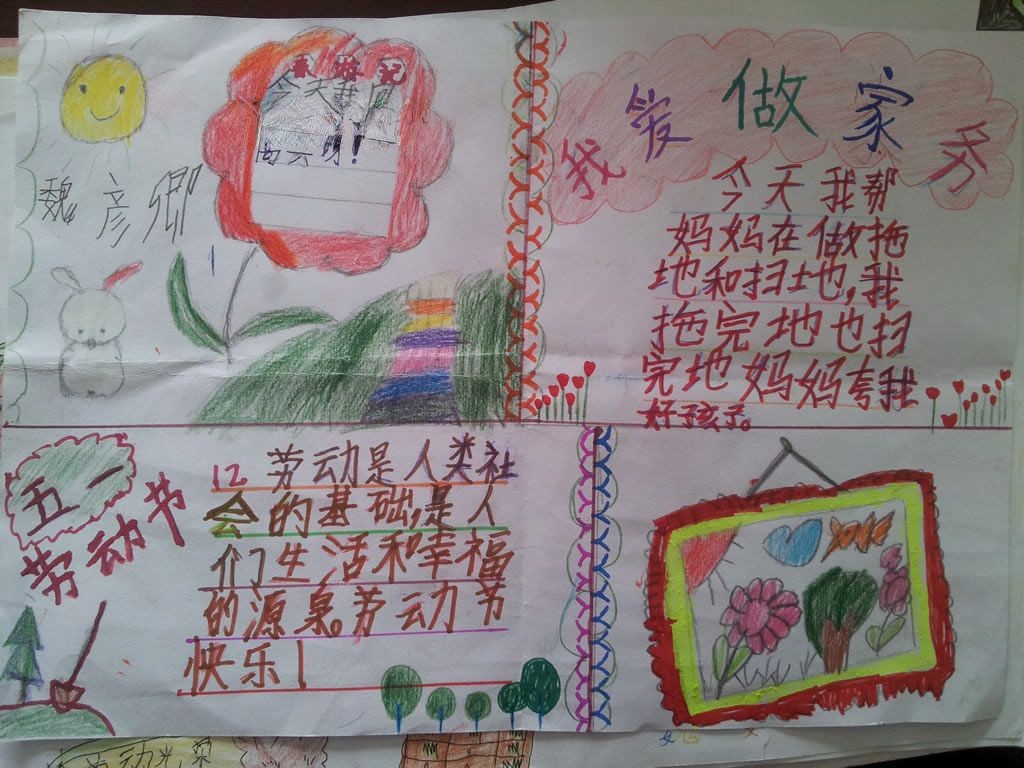 春游记
今天我们
向云呀!
魏彦卿
我爱做家务
今天我帮
妈妈在做拖
地和扫地,我
拖完地也扫
完地妈妈夸我
好孩子。
五一
劳动节
劳动是人类社
会的基础,是人
们生活和幸福
的源泉。劳动节
快乐!
劳动光荣